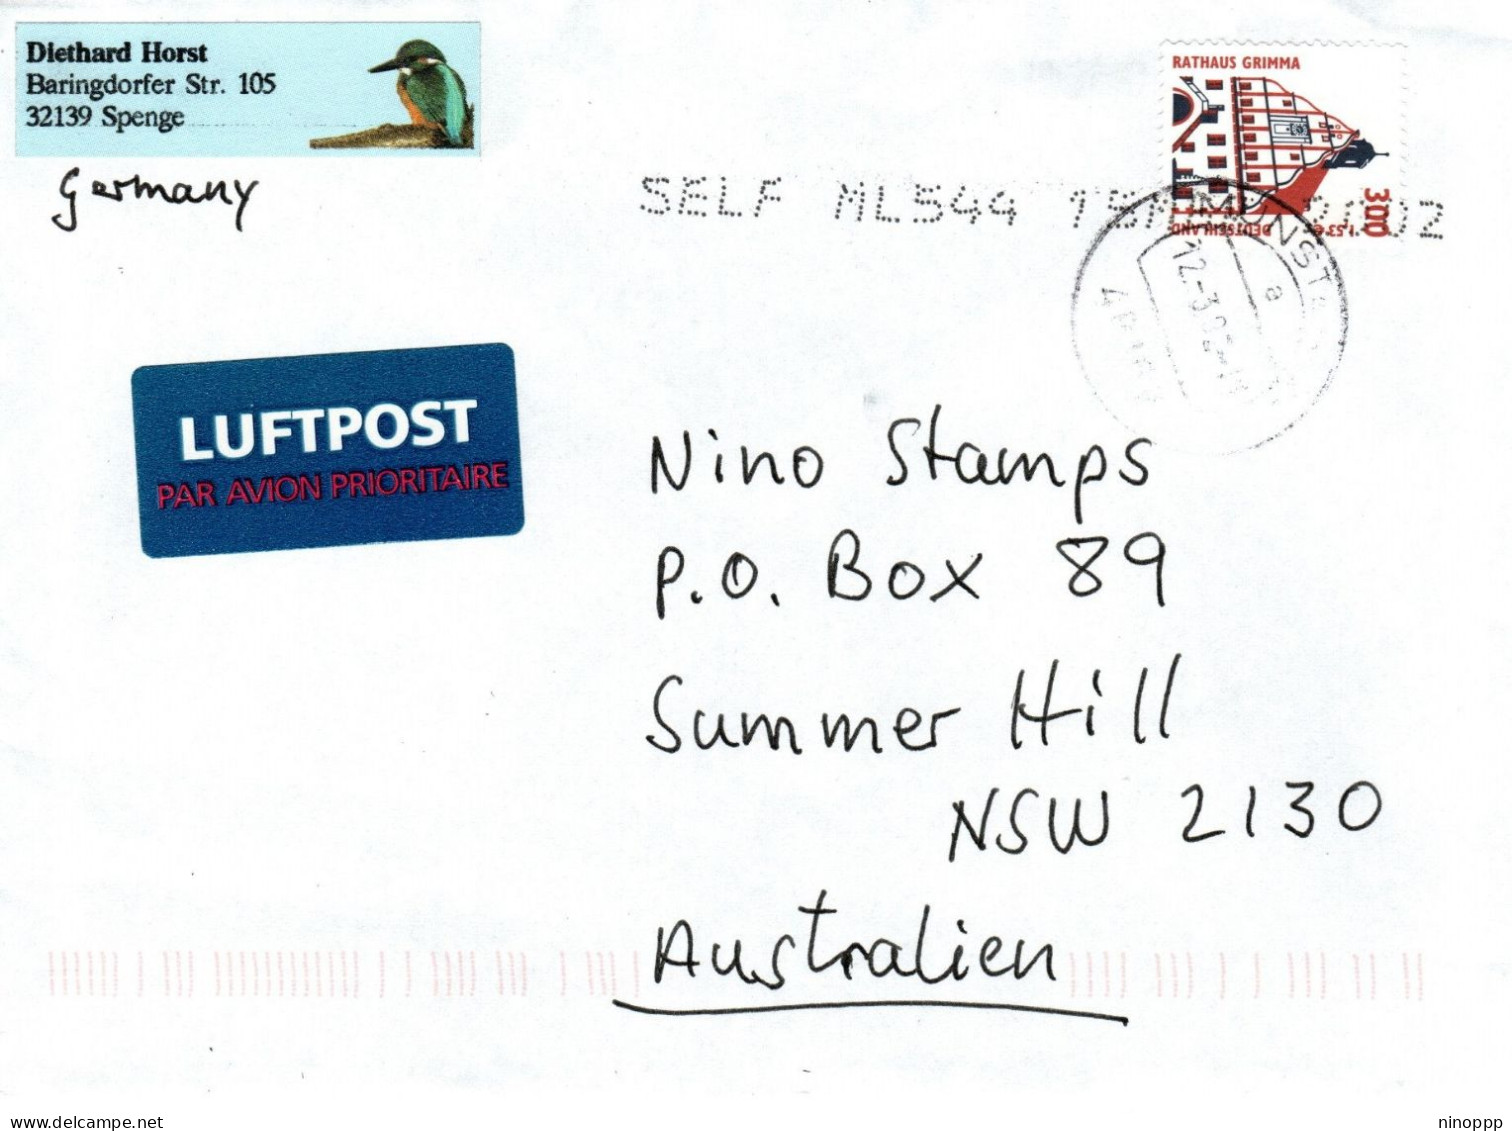 Diethard Horst
Baringdorfer Str. 105
32139 Spenge
Germany
RATHAUS GRIMMA
DEUTSCHLAND
1,53 €
300
SELF ML544 15M 2002
MÜNST
12.-3.02
a
LUFTPOST
PAR AVION PRIORITAIRE
Nino Stamps
P.O. Box 89
Summer Hill
NSW 2130
Australien
ninoppp
delcampe.net